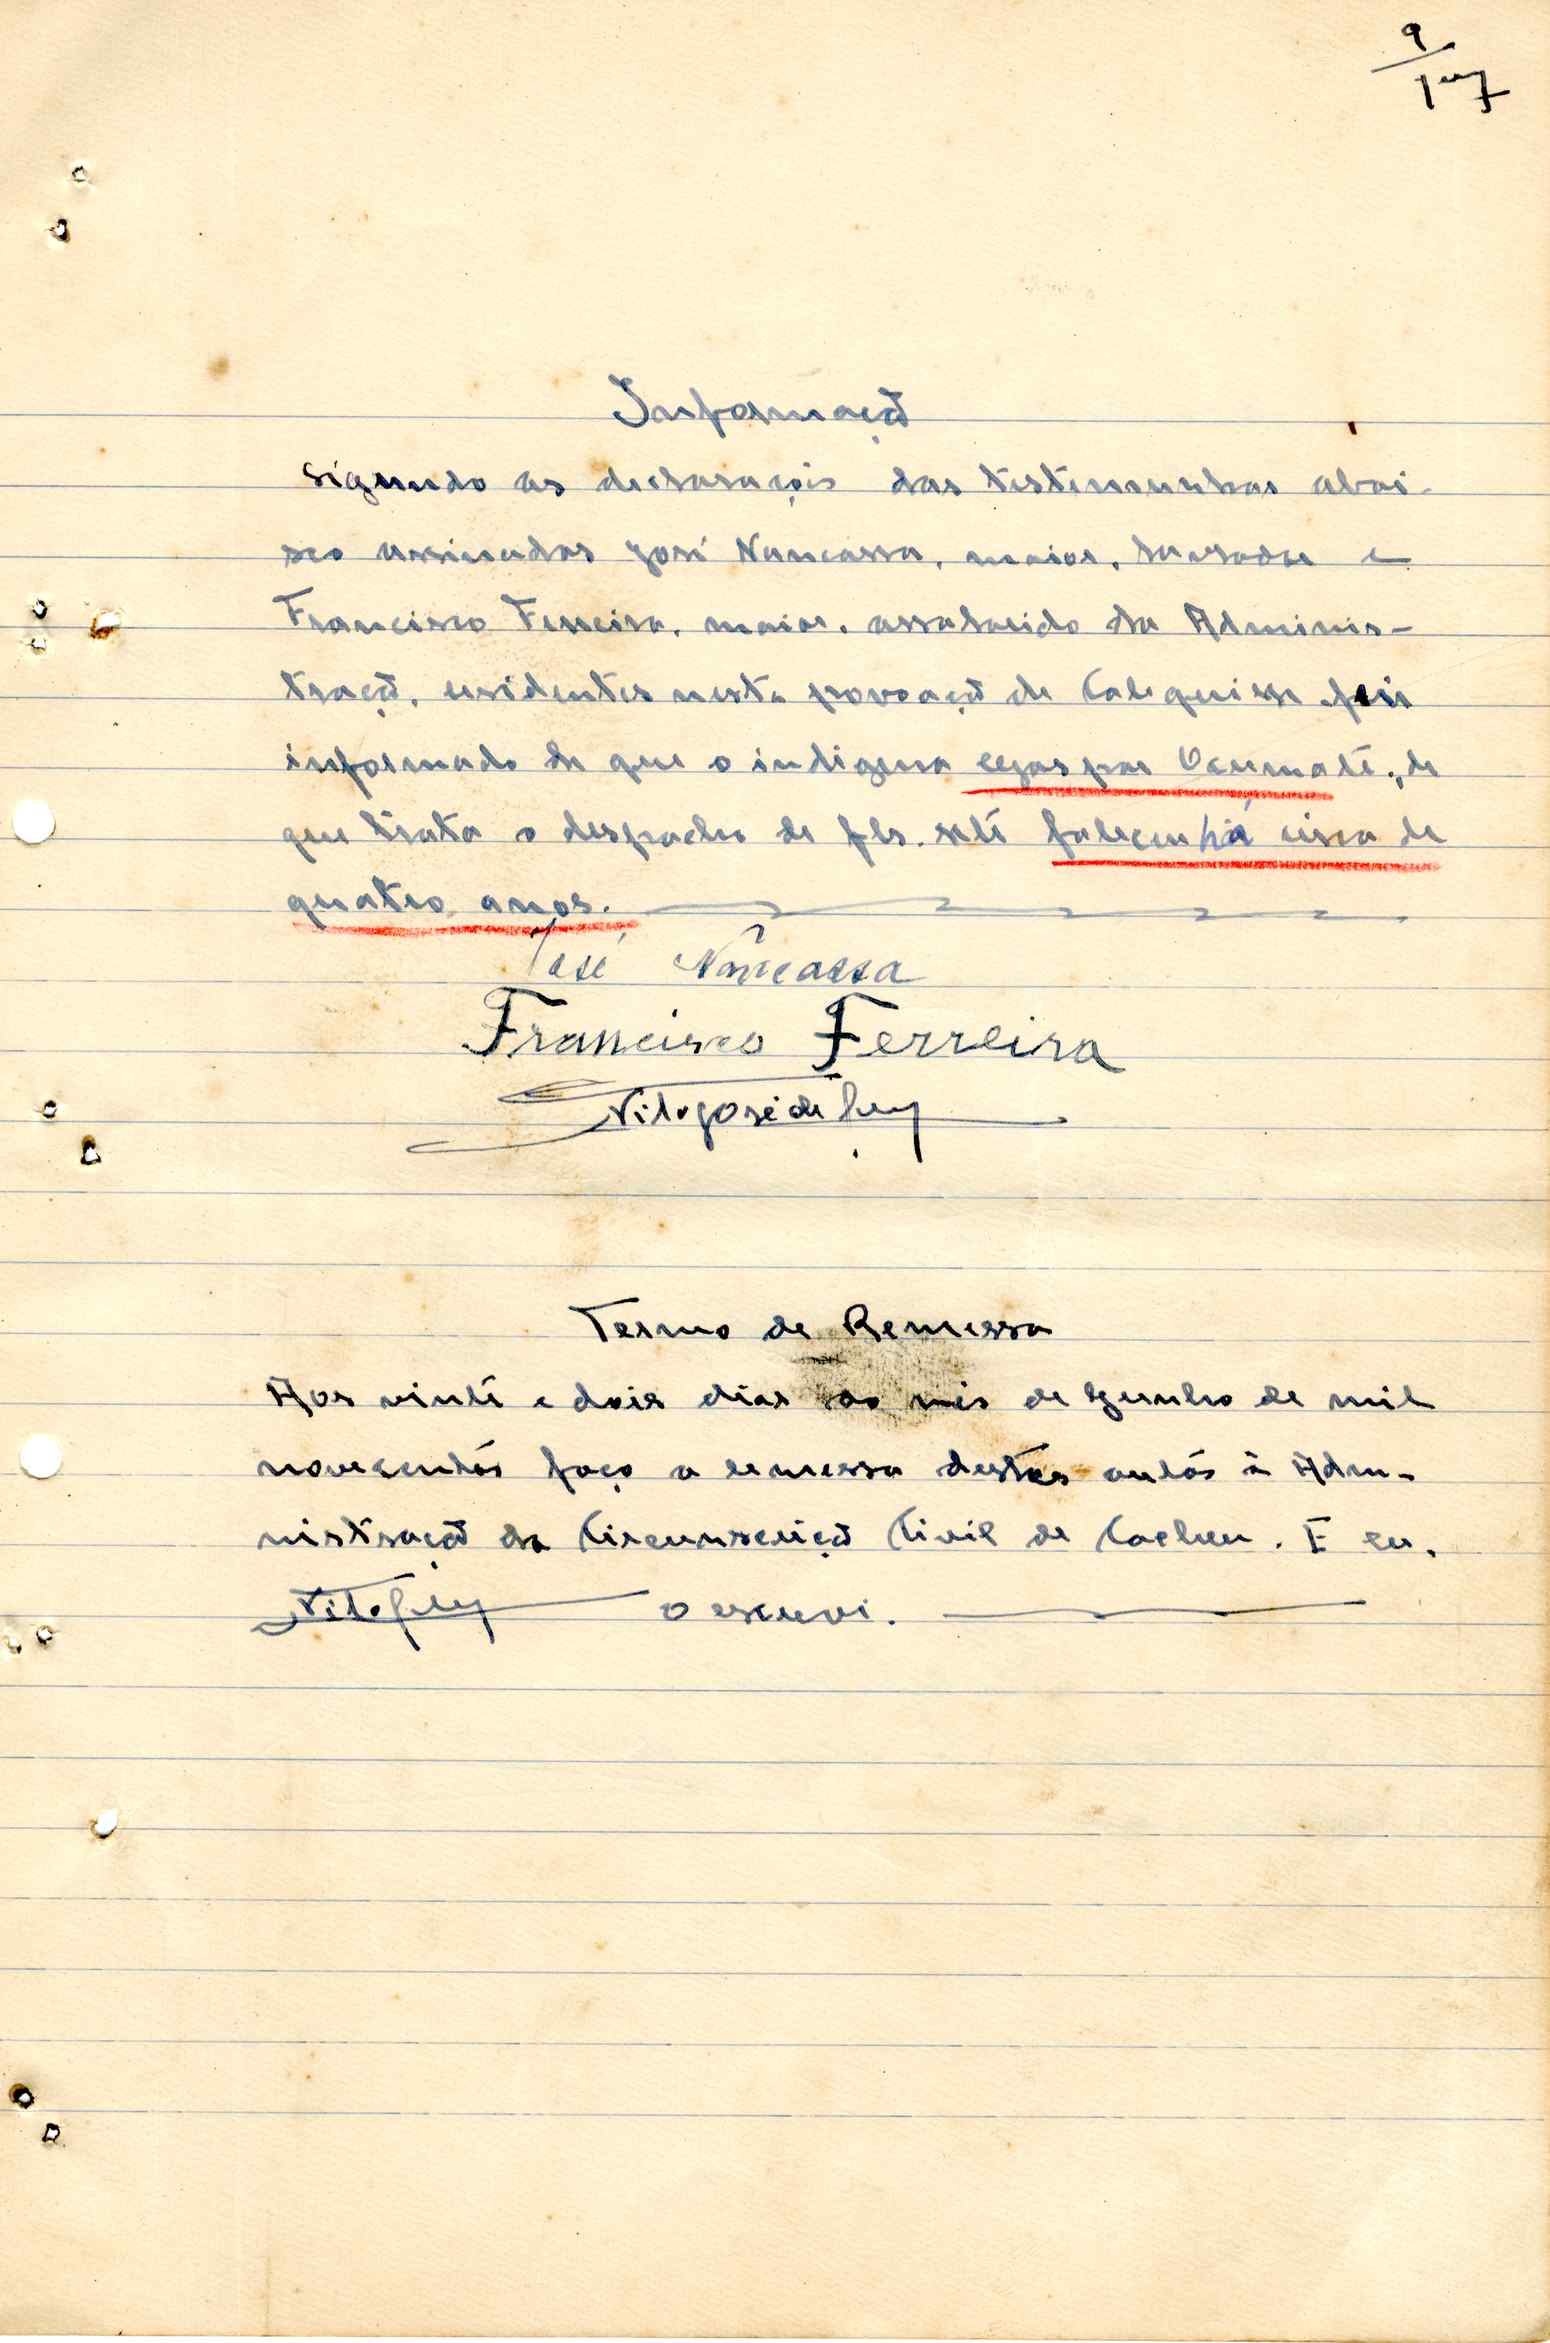 9
Informação
Segundo as declarações das testemunhas abai-
xo assinadas José Nancassa, maior, lavrador e
Francisco Ferreira, maior, assalariado da Adminis-
tração, residentes nesta povoação de Calequisse fui
informado de que o indígena Gaspar Ucumaté, de
que trata o despacho de fls. sete faleceu há cerca de
quatro anos.
José Nancassa
Francisco Ferreira
Vito José de
Termo de Remessa
Aos vinte e dois dias do mês de Junho de mil
novecentos faço a remessa destes autos à Admi-
nistração da Circunscrição Civil de Cacheu. E eu,
Vito o escrevi.